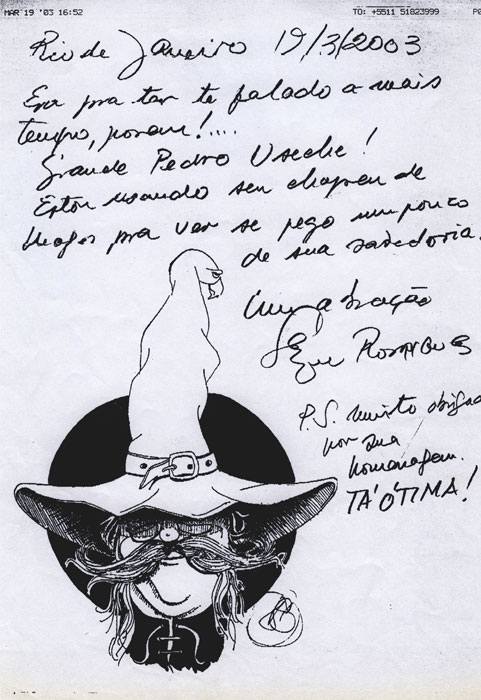 MAR 19 '03 16:52
TO: +5511 51823999
Rio de Janeiro 19/3/2003
Era pra ter te falado a mais
tempo, porem!....
Grande Pedro Useche!
Estou usando seu chapeu de
Mago pra ver se pego um pouco
de sua sabedoria.
Um abração
P.S. muito obrigado
por sua
homenagem.
TÁ ÓTIMA!